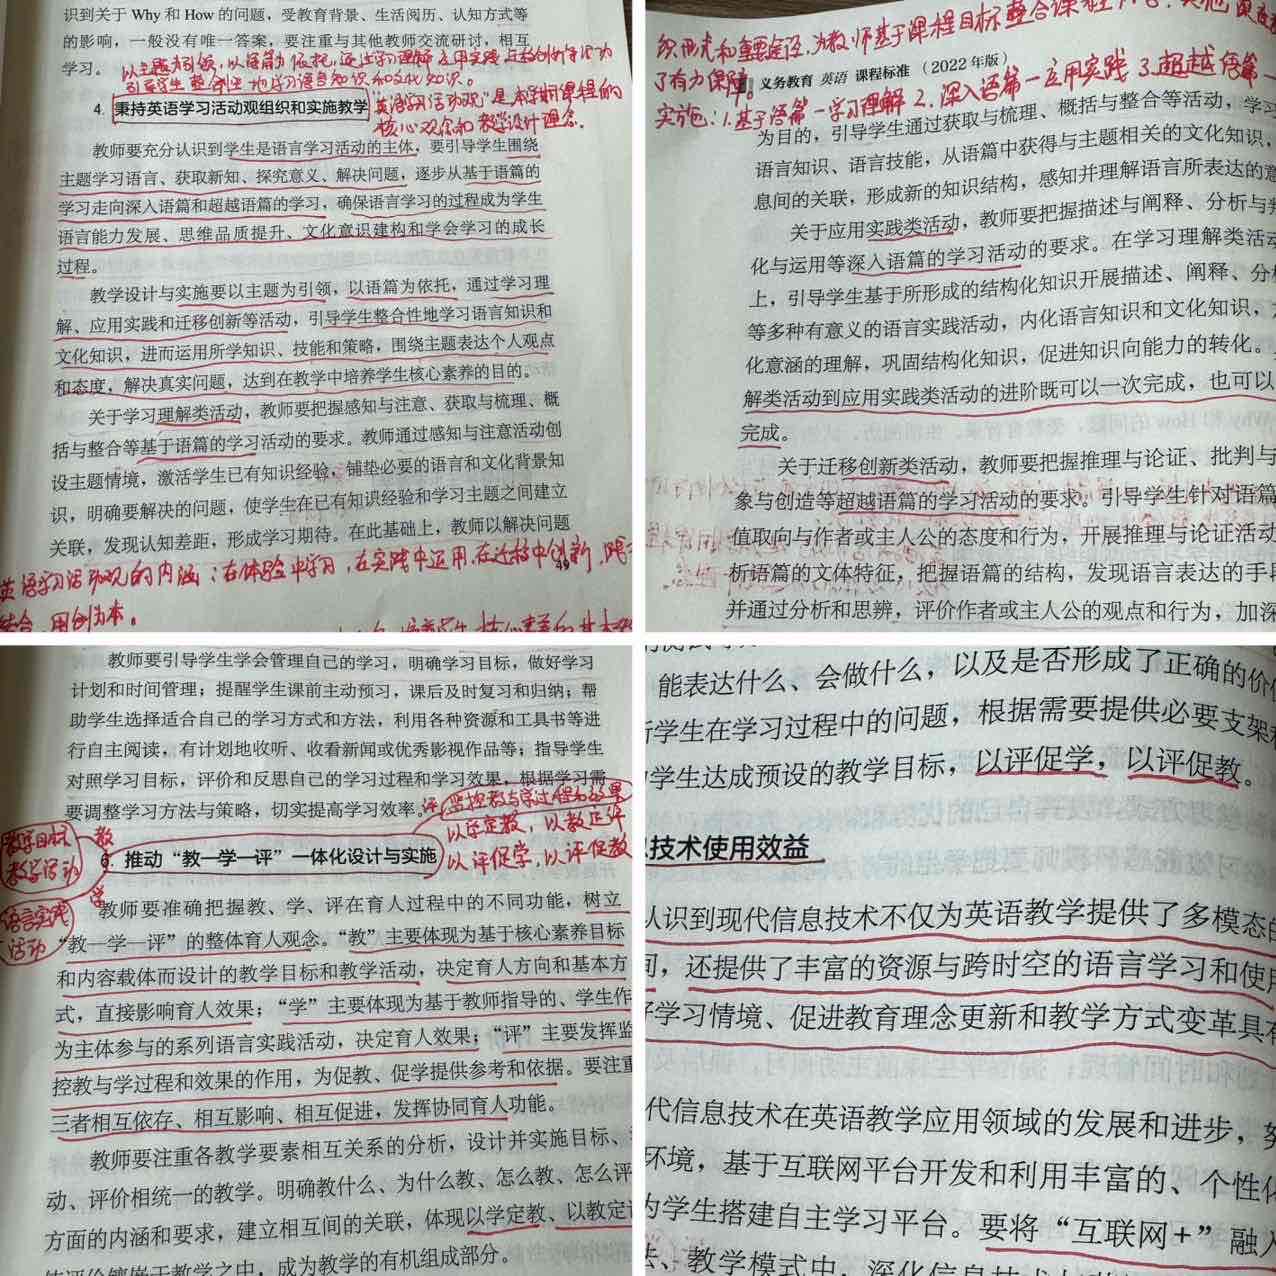 识到关于 Why 和 How 的问题，受教育背景、生活阅历、认知方式等
的影响，一般没有唯一答案，要注重与其他教师交流研讨，相互
学习。
以主题为引领，以语篇为依托，通过学习理解、应用实践、迁移创新等活动
引导学生整合性地学习语言知识和文化知识。
4. 秉持英语学习活动观组织和实施教学
“英语学习活动观”是本学期课程的
核心观念和教学设计理念。
教师要充分认识到学生是语言学习活动的主体，要引导学生围绕
主题学习语言、获取新知、探究意义、解决问题，逐步从基于语篇的
学习走向深入语篇和超越语篇的学习，确保语言学习的过程成为学生
语言能力发展、思维品质提升、文化意识建构和学会学习的成长
过程。
教学设计与实施要以主题为引领，以语篇为依托，通过学习理
解、应用实践和迁移创新等活动，引导学生整合性地学习语言知识和
文化知识，进而运用所学知识、技能和策略，围绕主题表达个人观点
和态度，解决真实问题，达到在教学中培养学生核心素养的目的。
关于学习理解类活动，教师要把握感知与注意、获取与梳理、概
括与整合等基于语篇的学习活动的要求。教师通过感知与注意活动创
设主题情境，激活学生已有知识经验，铺垫必要的语言和文化背景知
识，明确要解决的问题，使学生在已有知识经验和学习主题之间建立
关联，发现认知差距，形成学习期待。在此基础上，教师以解决问题
49
英语学习活动观的内涵：在体验中学习，在实践中运用，在迁移中创新，
结合、用创为本。
织形式和重要途径，为教师基于课程目标整合课程内容、
了有力保障。
义务教育 英语 课程标准（2022 年版）
实施：1.基于语篇—学习理解 2.深入语篇—应用实践 3.超越语篇—
为目的，引导学生通过获取与梳理、概括与整合等活动，学习
语言知识、语言技能，从语篇中获得与主题相关的文化知识，
息间的关联，形成新的知识结构，感知并理解语言所表达的意
关于应用实践类活动，教师要把握描述与阐释、分析与判
化与运用等深入语篇的学习活动的要求。在学习理解类活动
上，引导学生基于所形成的结构化知识开展描述、阐释、分析
等多种有意义的语言实践活动，内化语言知识和文化知识，
化意涵的理解，巩固结构化知识，促进知识向能力的转化。
解类活动到应用实践类活动的进阶既可以一次完成，也可以
完成。
关于迁移创新类活动，教师要把握推理与论证、批判与
象与创造等超越语篇的学习活动的要求。引导学生针对语篇
值取向与作者或主人公的态度和行为，开展推理与论证活动
析语篇的文体特征，把握语篇的结构，发现语言表达的手段
并通过分析和思辨，评价作者或主人公的观点和行为，加深
教师要引导学生学会管理自己的学习，明确学习目标，做好学习
计划和时间管理；提醒学生课前主动预习，课后及时复习和归纳；帮
助学生选择适合自己的学习方式和方法，利用各种资源和工具书等进
行自主阅读，有计划地收听、收看新闻或优秀影视作品等；指导学生
对照学习目标，评价和反思自己的学习过程和学习效果，根据学习需
要调整学习方法与策略，切实提高学习效率。
评 监控教与学过程和效果
以学定教，以教定评
以评促学，以评促教
教学目标
教学活动
教
6. 推动“教—学—评”一体化设计与实施
学
语言实践
活动
教师要准确把握教、学、评在育人过程中的不同功能，树立
“教—学—评”的整体育人观念。“教”主要体现为基于核心素养目标
和内容载体而设计的教学目标和教学活动，决定育人方向和基本方
式，直接影响育人效果；“学”主要体现为基于教师指导的、学生作
为主体参与的系列语言实践活动，决定育人效果；“评”主要发挥监
控教与学过程和效果的作用，为促教、促学提供参考和依据。要注重
三者相互依存、相互影响、相互促进，发挥协同育人功能。
教师要注重各教学要素相互关系的分析，设计并实施目标、
动、评价相统一的教学。明确教什么、为什么教、怎么教、怎么评
方面的内涵和要求，建立相互间的关联，体现以学定教、以教定
成为教学的有机组成部分。
能表达什么、会做什么，以及是否形成了正确的价值
学生在学习过程中的问题，根据需要提供必要支架
学生达成预设的教学目标，以评促学，以评促教。
技术使用效益
认识到现代信息技术不仅为英语教学提供了多模态的
间，还提供了丰富的资源与跨时空的语言学习和使用
学习情境、促进教育理念更新和教学方式变革具有
代信息技术在英语教学应用领域的发展和进步，努
环境，基于互联网平台开发和利用丰富的、个性化
为学生搭建自主学习平台。要将“互联网+”融入
法、教学模式中，深化信息技术